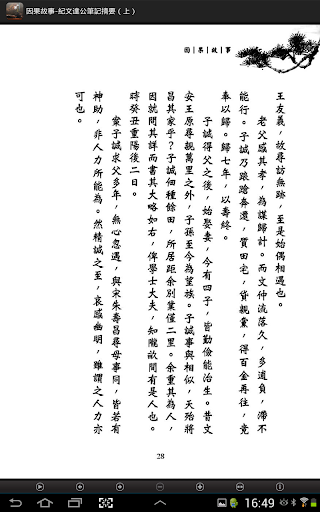 因果故事-紀文達公筆記摘要（上）
因|果|故|事
王友義，故尋訪無跡，至是始偶相遇也。
老父感其孝，為謀歸計。而文仲流落久，多逋負，滯不
能行。子誠乃踉蹌奔還，質田宅，貸親黨，得百金再往，竟
奉以歸。歸七年，以壽終。
子誠得父之後，始娶妻，今有四子，皆勤儉能治生。昔文
安王原尋親萬里之外，子孫至今為望族。子誠事與相似，天殆將
昌其家乎？子誠佃種余田，所居距余別業僅二里。余重其為人，
因就問其詳而書其大略如右，俾學士大夫，知隴畝間有是人也。
時癸丑重陽後二日。
案子誠求父多年，無心忽遇，與宋朱壽昌尋母事同，皆若有
神助，非人力所能為。然精誠之至，哀感幽明，雖謂之人力亦
可也。
28
16:49